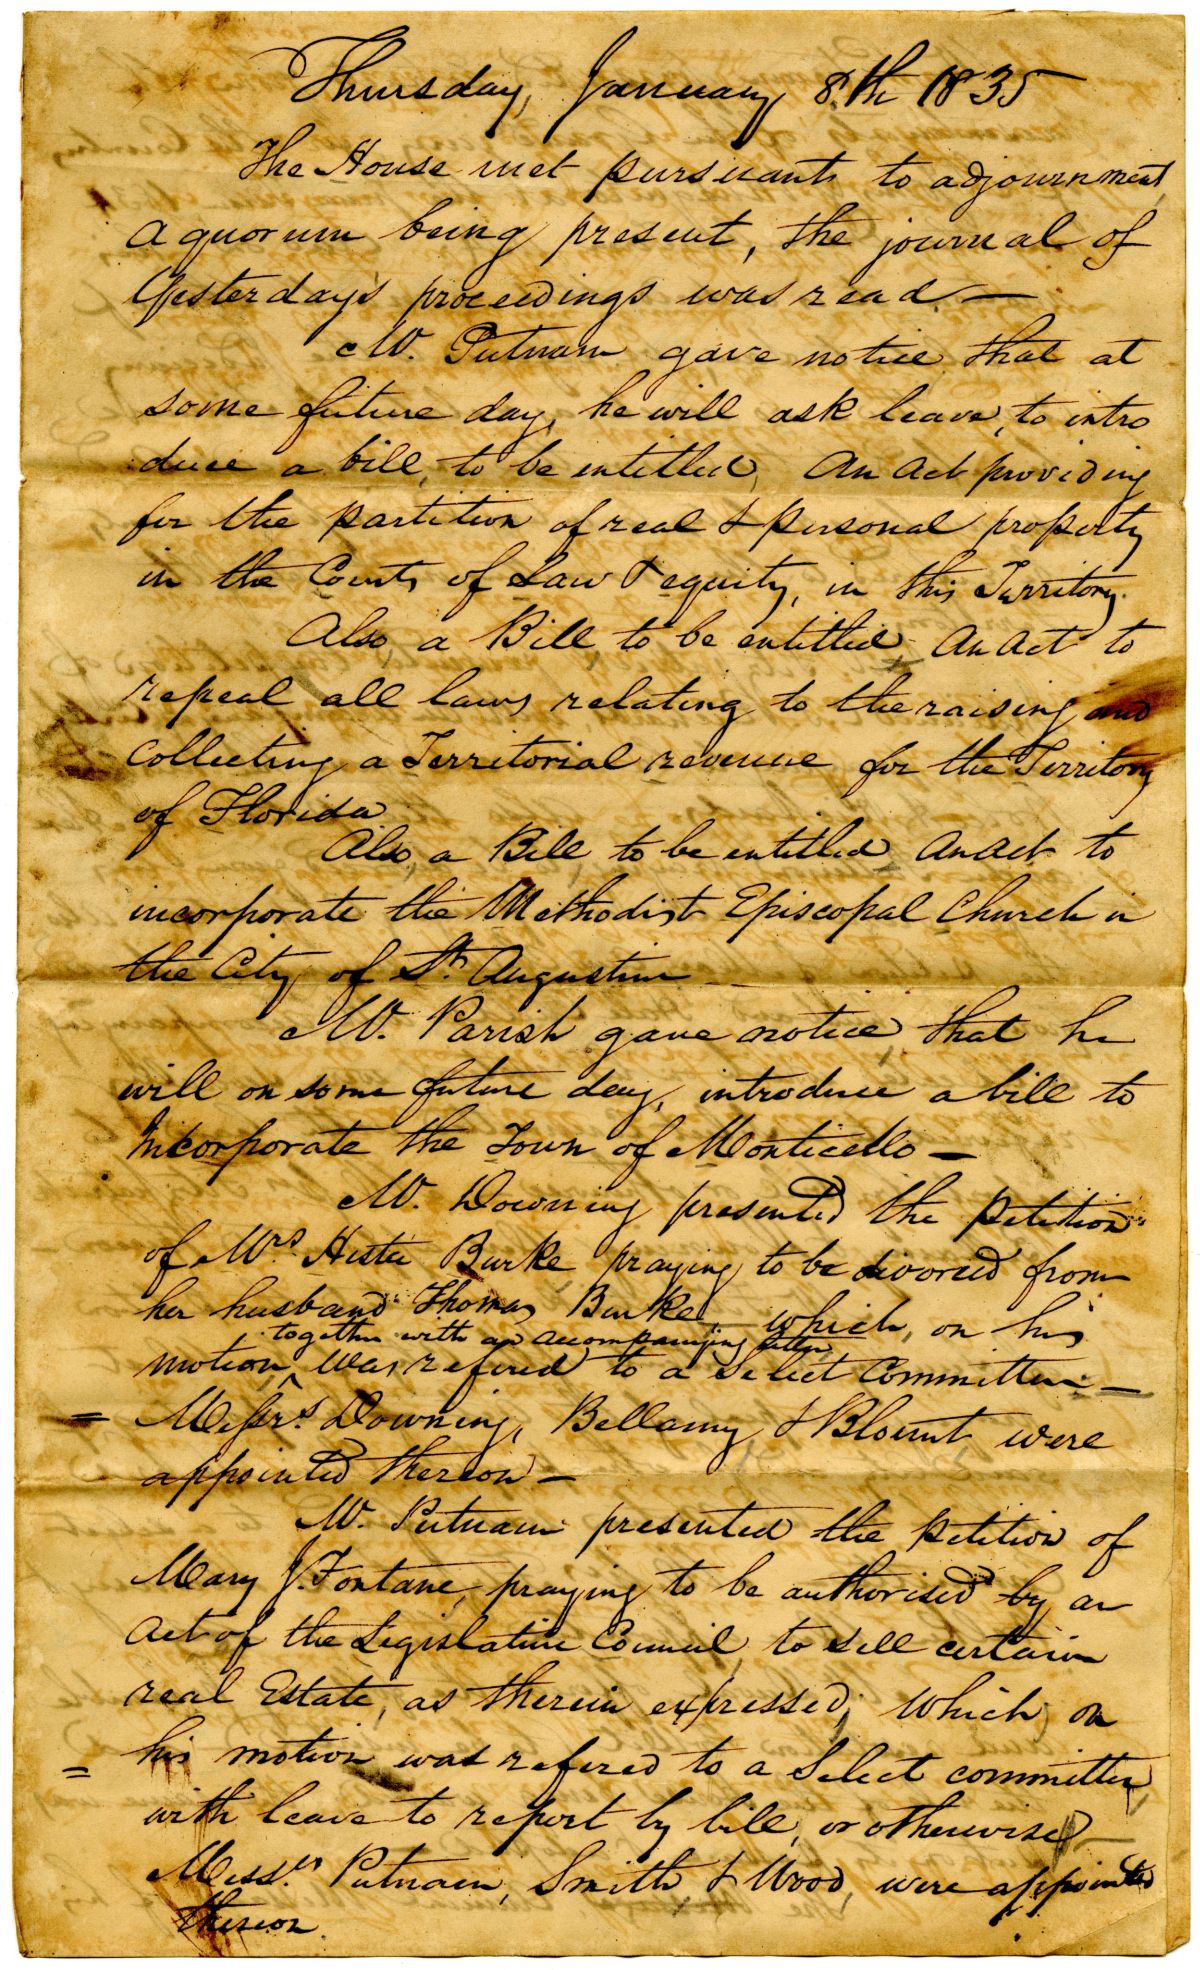 Thursday, January 8th 1835
The House met pursuant to adjournment,
a quorum being present, the journal of
Yesterday's proceedings was read —
Mr. Putnam gave notice that at
some future day, he will ask leave, to intro
duce a bill, to be entitled, An Act providing
for the partition of real & personal property
in the Courts of Law & equity, in this Territory.
Also, a Bill, to be entitled An Act to
repeal all laws relating to the raising and
collecting a Territorial revenue for the Territory
of Florida
Also, a Bill to be entitled An Act to
incorporate the Methodist Episcopal Church in
the City of St. Augustine
Mr. Parish gave notice that he
will on some future day, introduce a bill to
Incorporate the Town of Monticello —
Mr. Downing presented the petition
of Mrs. Hester Burke praying to be divorced from
her husband Thomas Burke, which, on his
together with an accompanying letter
motion, was refered to a Select Committee —
= Messrs. Downing, Bellamy & Blount were
appointed thereon —
Mr. Putnam presented the petition of
Mary J. Fontane, praying to be authorised by an
Act of the Legislative Council, to sell certain
real Estate, as therein expressed; which on
= his motion was refered to a Select committee
with leave to report by bill, or otherwise
Messrs. Putnam, Smith & Wood, were appointed
thereon